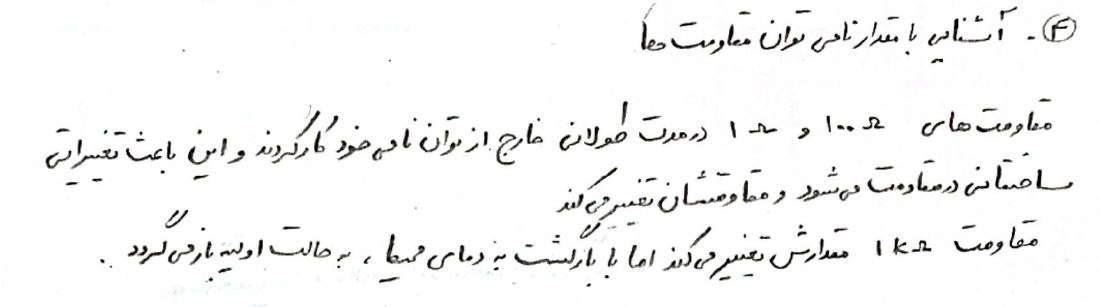 ④ - آشنایی با مقدار نامی توان مقاومت ها
مقاومت های 100 Ω و 1 Ω در مدت طولانی خارج از توان نامی خود کار کردند و این باعث تغییراتی
ساختمانی در مقاومت می شود و مقاومتشان تغییر می کند
مقاومت 1 kΩ مقدارش تغییر می کند اما با بازگشت به دمای محیط ، به حالت اولیه باز می گردد .